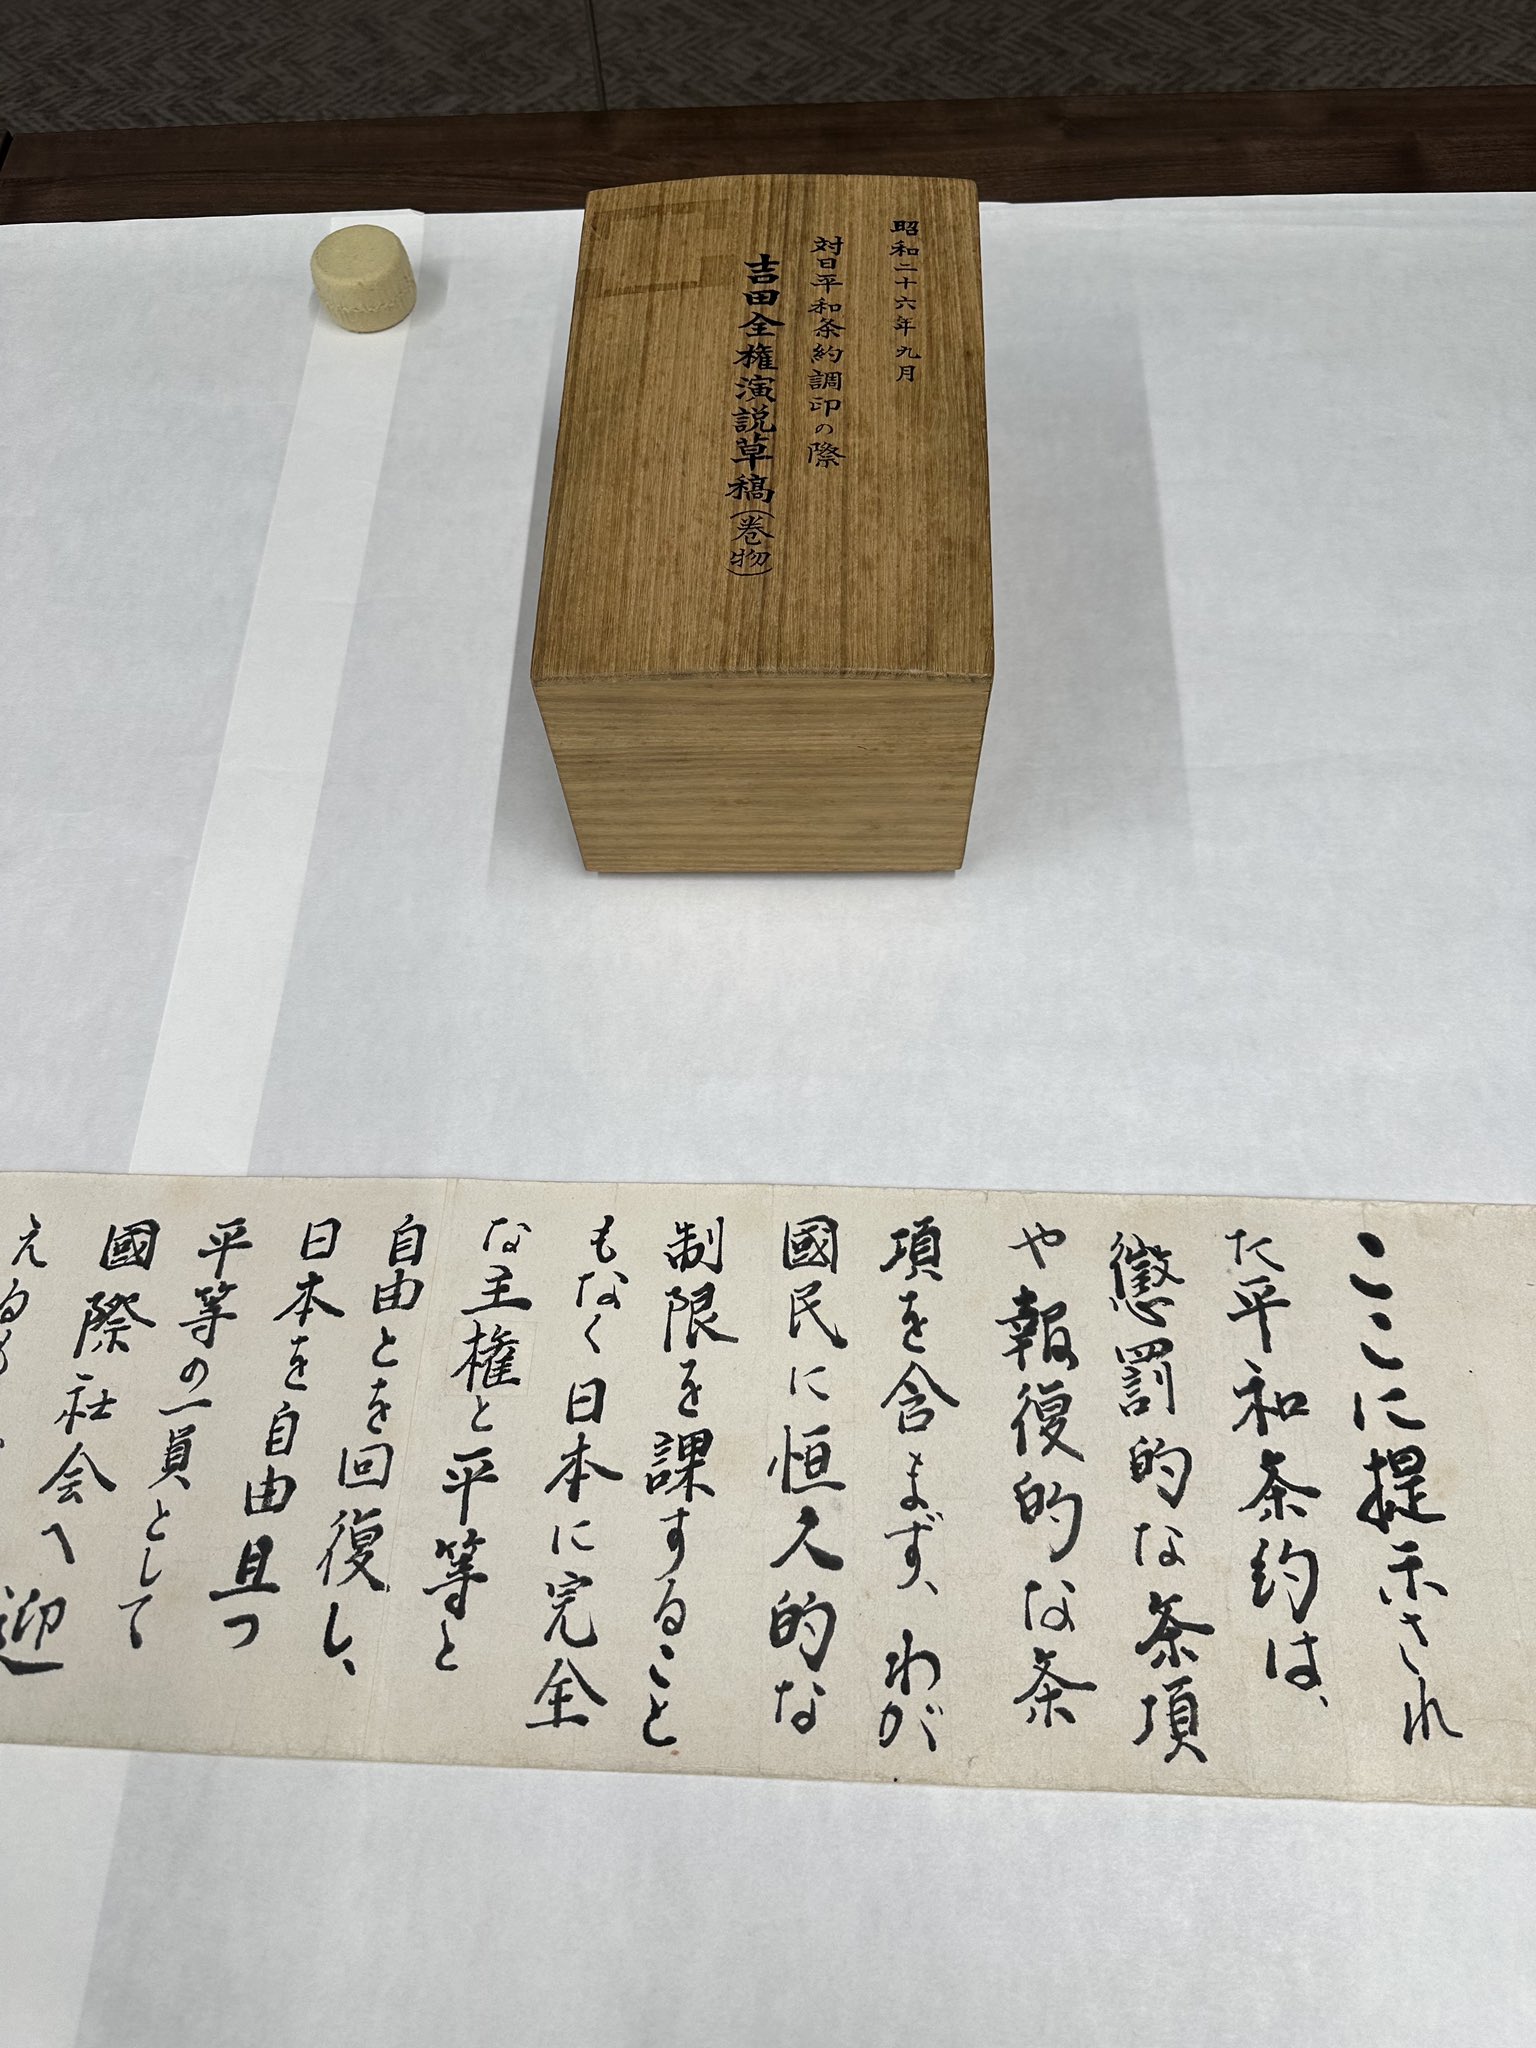 昭和二十六年九月
対日平和条約調印の際
吉田全権演説草稿(巻物)
ここに提示され
た平和条約は、
懲罰的な条項
や報復的な条
項を含まず、わが
國民に恒久的な
制限を課すること
もなく日本に完全
な主権と平等と
自由とを回復し、
日本を自由且つ
平等の一員として
國際社会へ迎
える